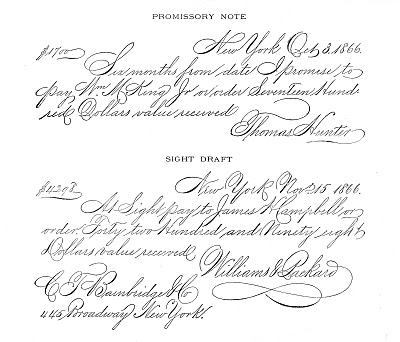 PROMISSORY NOTE
$1700 New York Oct 3. 1866.
Six months from date I promise to
pay Wm McKing Jr or order Seventeen Hund-
red Dollars value received
Thomas Hunter
SIGHT DRAFT
$4298 New York Nov. 15 1866.
At Sight pay to James W Campbell or
order Forty two Hundred and Ninety eight
Dollars value received
Williams & Packard
C. T. Bainbridge & Co
445 Broadway New York.